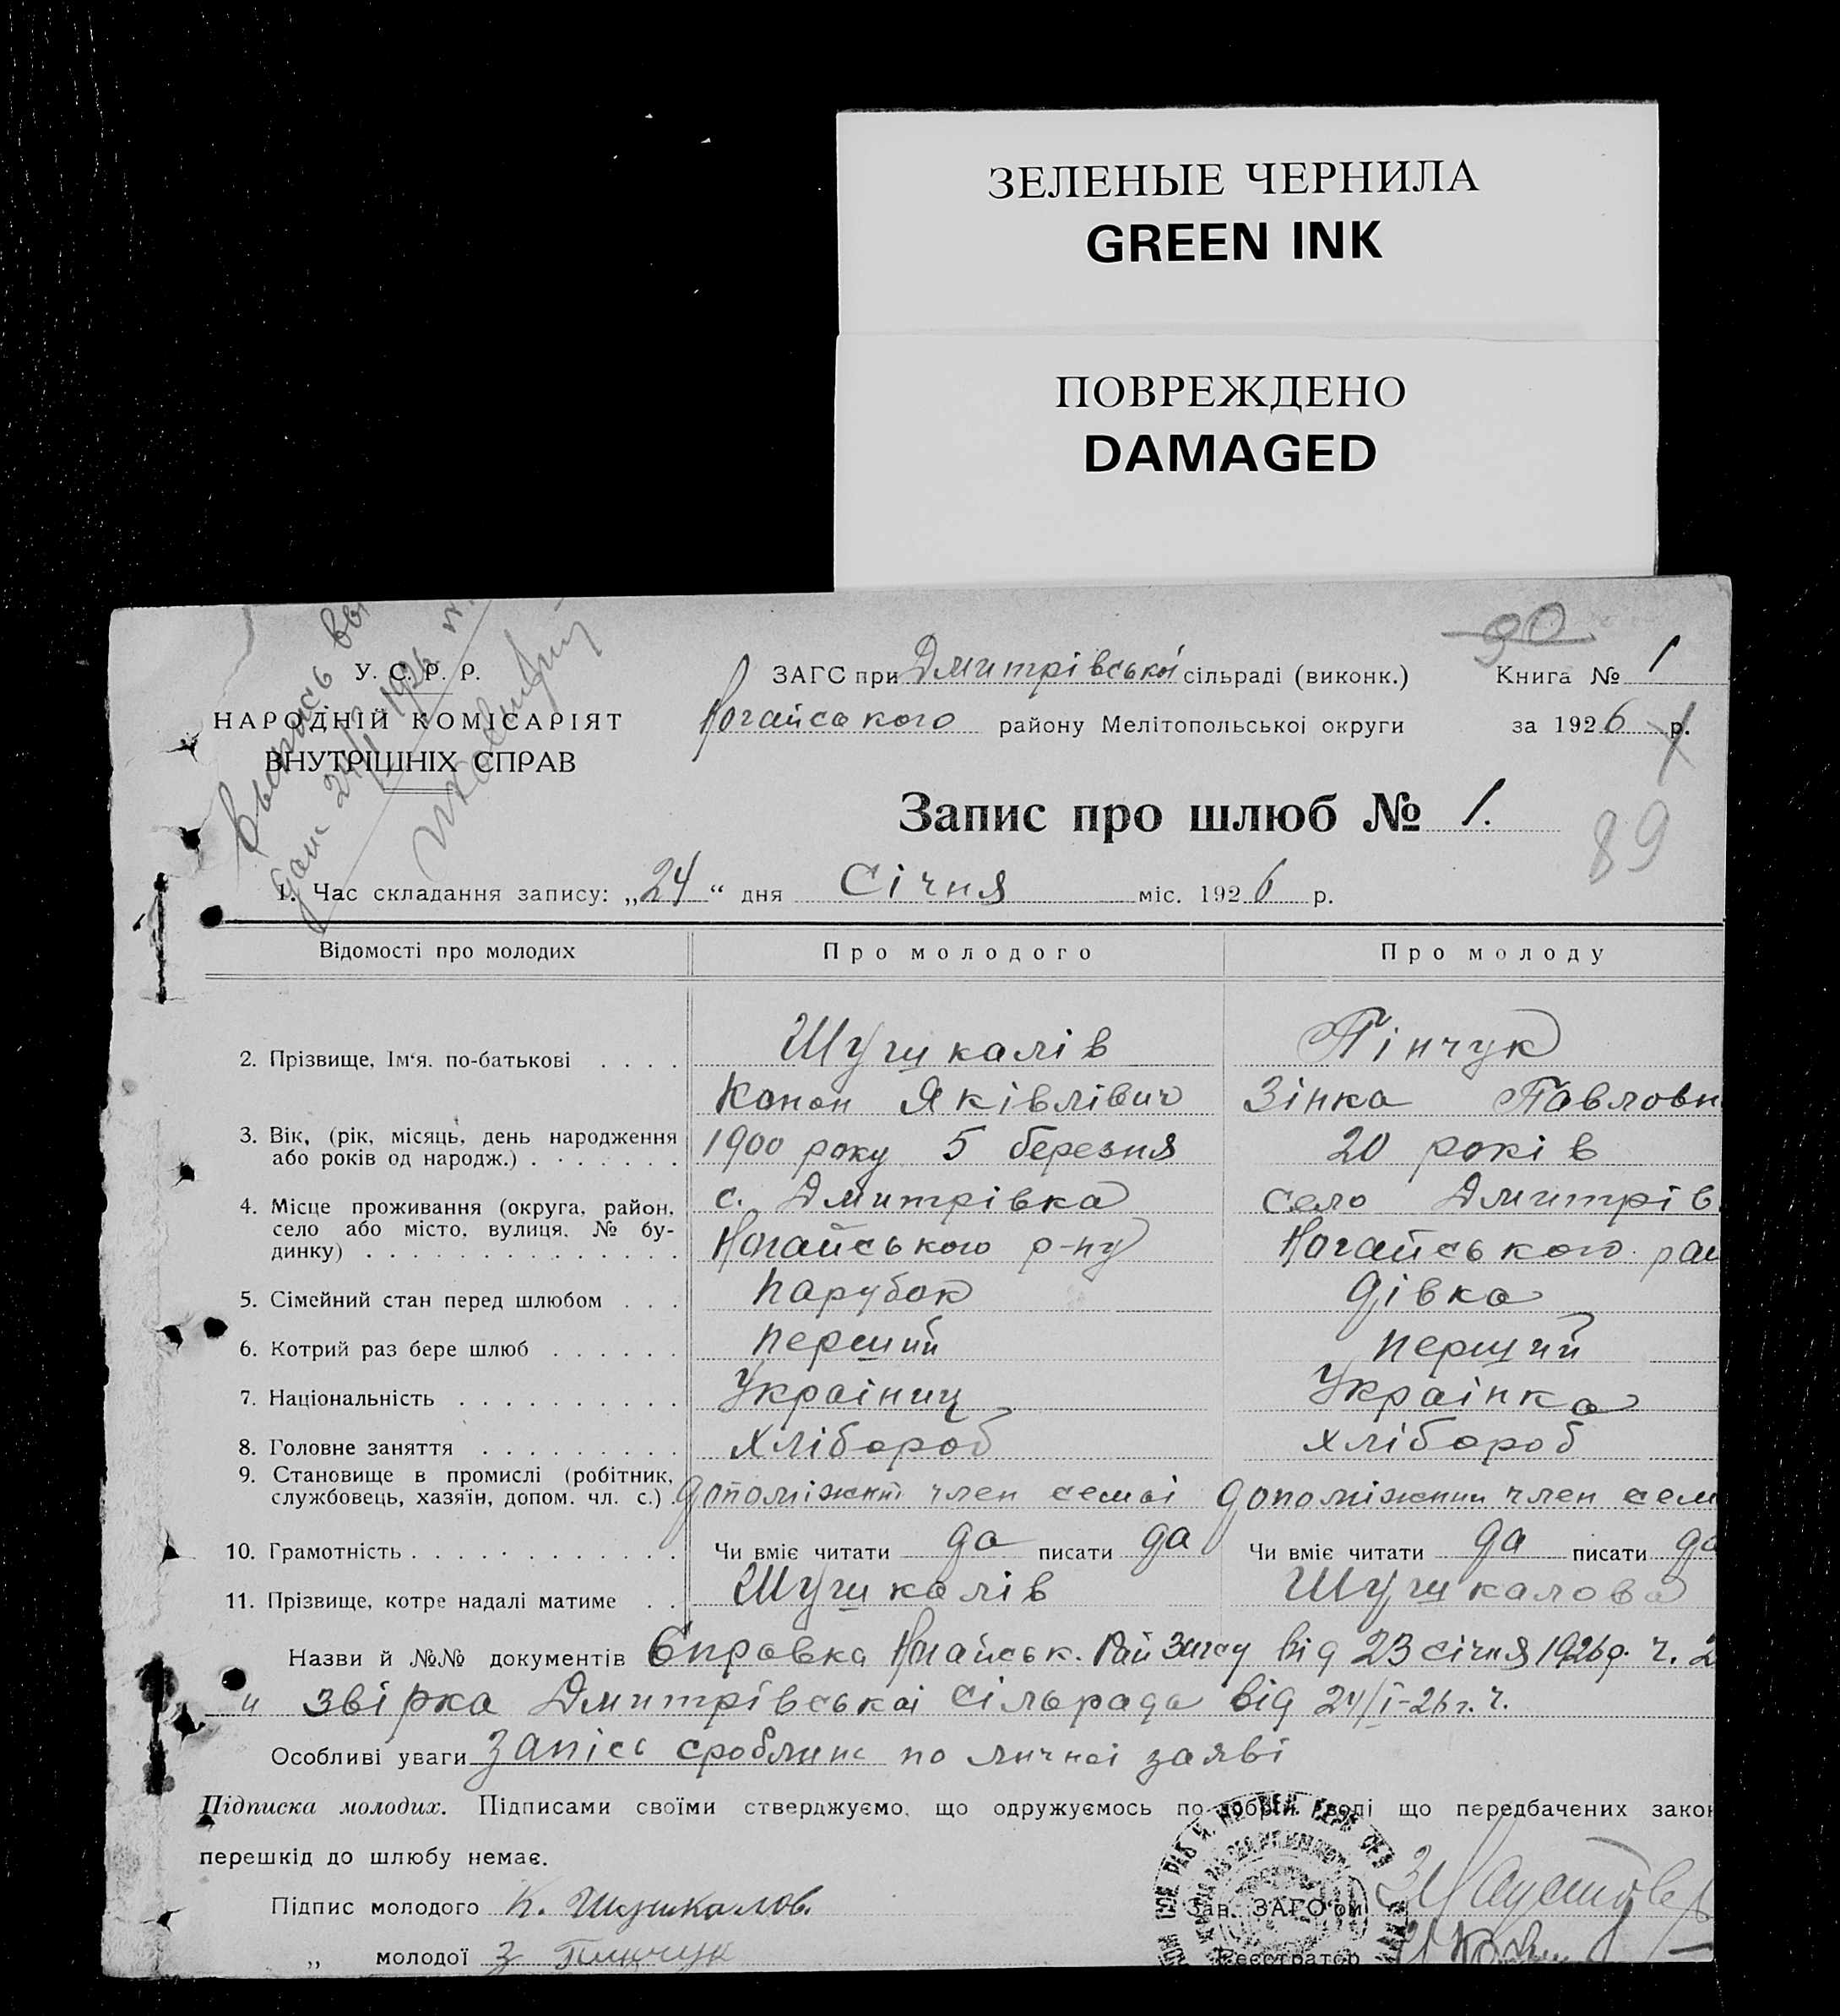 ЗЕЛЕНЫЕ ЧЕРНИЛА
GREEN INK
ПОВРЕЖДЕНО
DAMAGED
90
Выпись
дан 24/I 1926
У. С. Р. Р.
НАРОДНІЙ КОМІСАРІЯТ
ВНУТРІШНІХ СПРАВ
ЗАГС при Дмитрівської сільраді (виконк.)
Ногайського району Мелітопольської округи
Книга № 1
за 1926 р.
Запис про шлюб № 1.
89
1. Час складання запису: „24“ дня Січня міс. 1926 р.
Відомості про молодих Про молодого Про молоду
2. Прізвище, Ім'я. по-батькові . . . . Шушкалів Пінчук
Конон Яківлівич Зінка Павловн
3. Вік, (рік, місяць, день народження 1900 року 5 березня 20 років
або років од народж.) . . . . . . .
4. Місце проживання (округа, район, с. Дмитрівка село Дмитрів
село або місто, вулиця, № бу-
динку) . . . . . . . . . . . . . . Ногайського р-ну Ногайського рай
5. Сімейний стан перед шлюбом . . . парубок дівка
6. Котрий раз бере шлюб . . . . . . перший перший
7. Національність . . . . . . . . . . Украіниц Украінка
8. Головне заняття . . . . . . . . . хлібороб хлібороб
9. Становище в промислі (робітник,
службовець, хазяїн, допом. чл. с.) . допоміжний член семьі допоміжний член сем
10. Грамотність . . . . . . . . . . . . Чи вміє читати да писати да Чи вміє читати да писати да
11. Прізвище, котре надалі матиме . . Шушкалів Шушкалова
Назви й №№ документів Справка Ногайськ. Рай Загсу від 23 січня 1926р. ч. 2
и звірка Дмитрівськоі Сільрада від 24/I-26 г. ч.
Особливі уваги запісь сроблина по личноі заяві
Підписка молодих. Підписами своїми стверджуємо, що одружуємось по добрій волі що передбачених закон
перешкід до шлюбу немає.
Підпис молодого К. Шушкалов.
Зав. ЗАГС'ом
„ молодої З Пинчук
Реєстратор